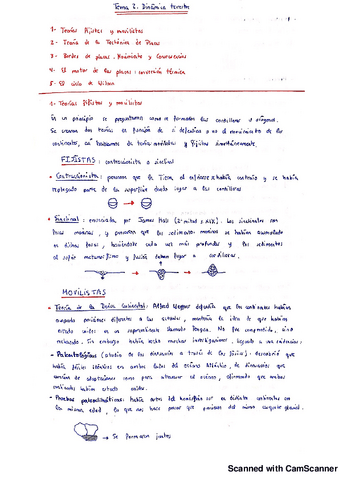 Tema 2. Dinámica terrestre
1- Teorías fijistas y movilistas
2- Teoría de la Tectónica de Placas
3- Bordes de placas. Nacimiento y Consecución
4- El motor de las placas: convección térmica
5- El ciclo de Wilson
1- Teorías fijistas y movilistas
En un principio se preguntaron como se formaban las cordilleras u orógenos.
Se crearon dos teorías en función de si defendían o no el movimiento de los
continentes, así hablamos de teorías movilistas y fijistas
FIJISTAS: contraccionista o sinclinal
• Contraccionista: pensaban que la Tierra al enfriarse había contraído y se había
replegado parte de la superficie dando lugar a las cordilleras
• Sinclinal: enunciada por James Hall (2ª mitad s. XIX). Los sinclinales son
fosas marinas, y pensaban que los sedimentos marinos se habían acumulado
en dichas fosas, haciéndose cada vez más profundas y los sedimentos
al sufrir metamorfismo y fusión daban lugar a cordilleras.
MOVILISTAS
• Teoría de la Deriva Continental: Alfred Wegener defendía que los continentes habían
ocupado posiciones diferentes a las actuales, mantenía la idea de que habían
estado unidos en un supercontinente llamado Pangea. No fue comprendido, sino
rechazado. Sin embargo había hecho muchas investigaciones, llegando a sus evidencias:
- Paleontológicas (estudio de los dinosaurios a través de los fósiles): descubrió que
había fósiles idénticos en ambos lados del océano Atlántico, de dinosaurios que
como para atravesar el océano, afirmando que ambos
continentes habían estado unidos.
- Pruebas paleoclimáticas: había restos del hemisferio sur en distintos continentes con
la misma edad, lo que nos hace pensar que partían del mismo casquete glaciar.
→ Se formaron juntos
Scanned with CamScanner